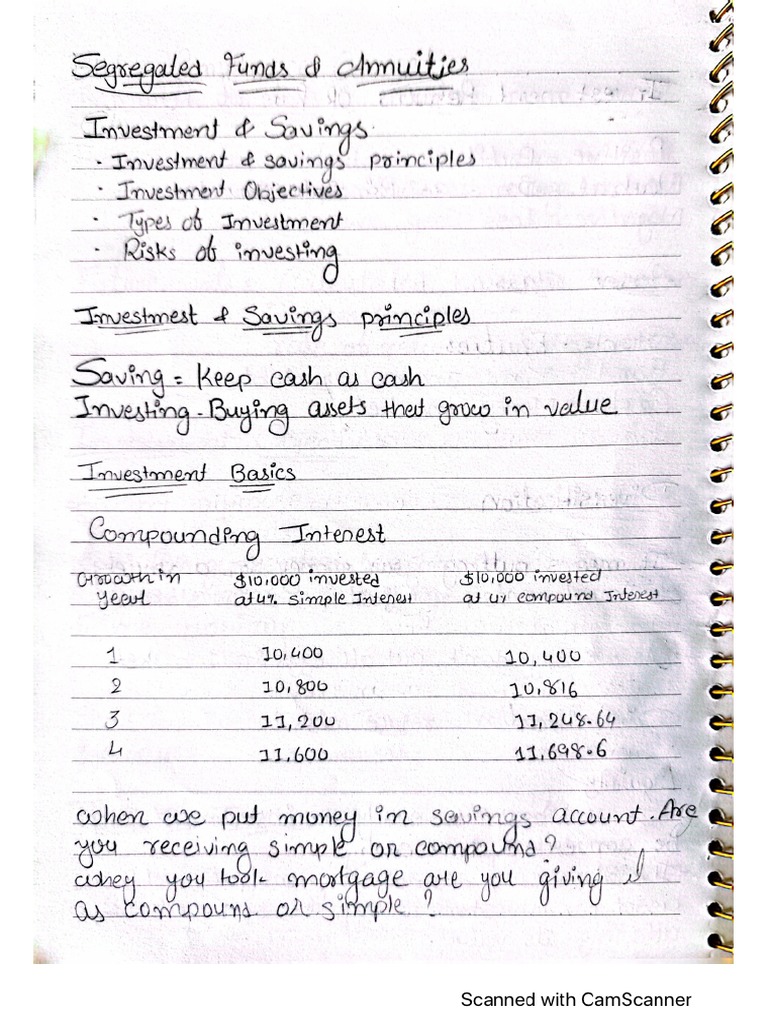 Segregated Funds & Annuities
Investment & Savings.
· Investment & savings principles
· Investment Objectives
· Types of Investment
· Risks of investing
Investment & Savings principles
Saving = Keep cash as cash
Investing - Buying assets that grow in value
Investment Basics
Compounding Interest
Growth in year $10,000 invested at 4% simple Interest $10,000 invested at 4% compound Interest
1 10,400 10,400
2 10,800 10,816
3 11,200 11,248.64
4 11,600 11,698.6
when we put money in savings account. Are
you receiving simple or compound?
whey you took mortgage are you giving
as compound or simple?
Scanned with CamScanner